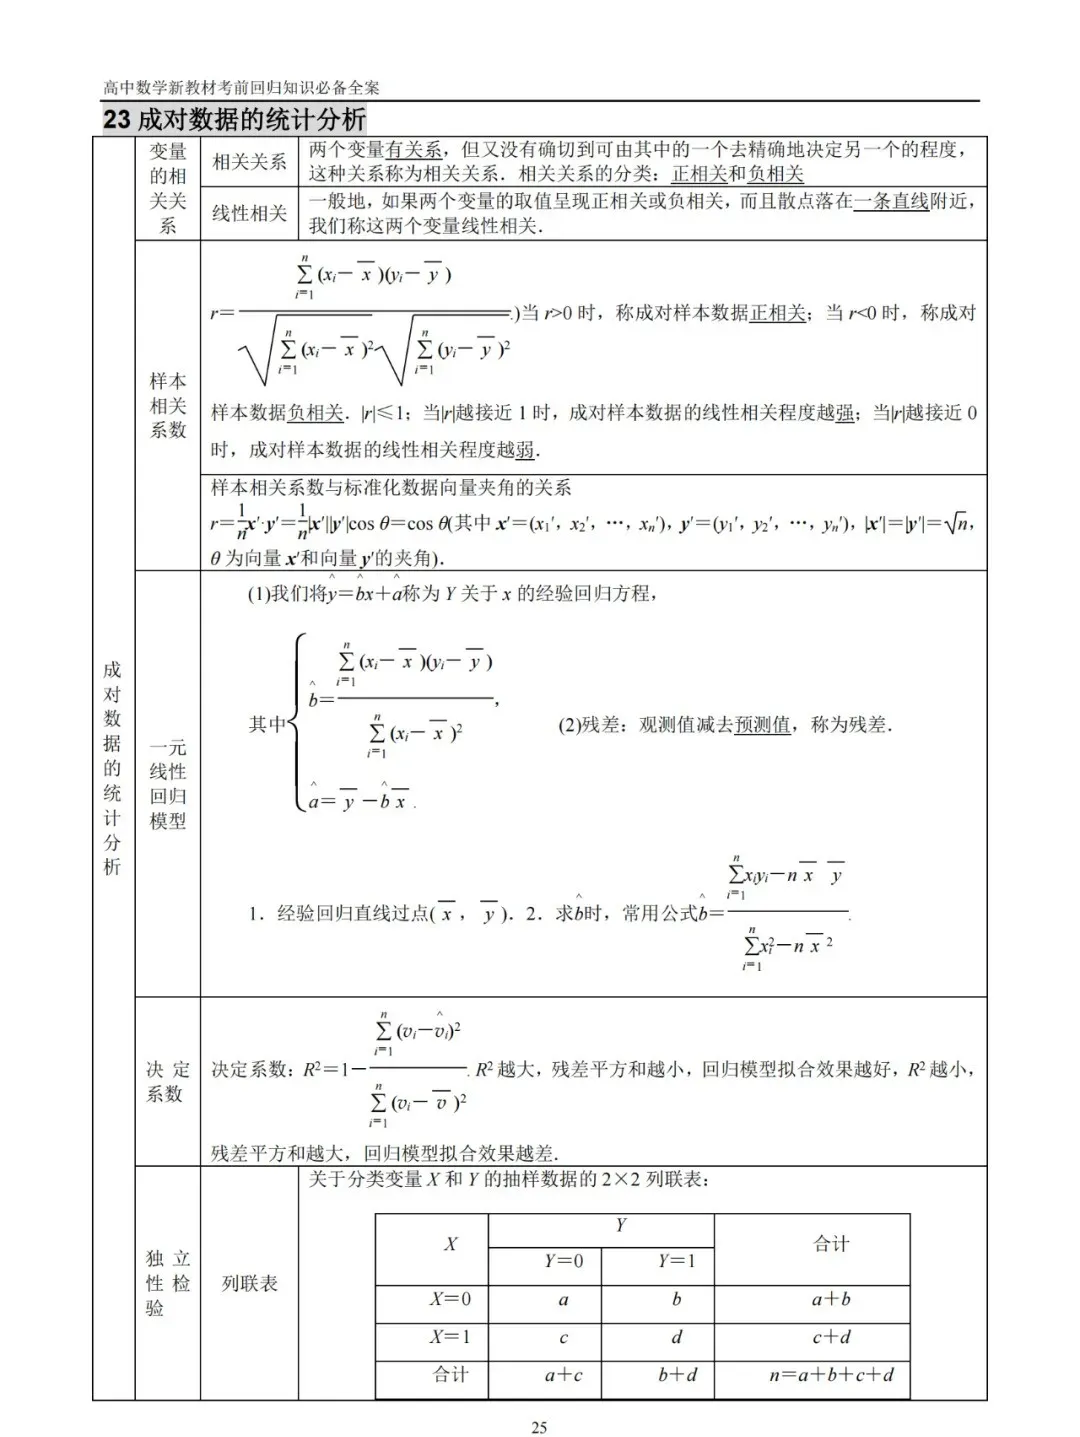 高中数学新教材考前回归知识必备全案
23 成对数据的统计分析
成对数据的统计分析
变量的相关关系
相关关系
两个变量有关系，但又没有确切到可由其中的一个去精确地决定另一个的程度，
这种关系称为相关关系．相关关系的分类：正相关和负相关
线性相关
一般地，如果两个变量的取值呈现正相关或负相关，而且散点落在一条直线附近，
我们称这两个变量线性相关．
样本相关系数
r＝\frac{\sum_{i=1}^{n}(x_i－\overline{x})(y_i－\overline{y})}{\sqrt{\sum_{i=1}^{n}(x_i－\overline{x})^2}\sqrt{\sum_{i=1}^{n}(y_i－\overline{y})^2}}.)当 r>0 时，称成对样本数据正相关；当 r<0 时，称成对
样本数据负相关．|r|≤1；当|r|越接近 1 时，成对样本数据的线性相关程度越强；当|r|越接近 0
时，成对样本数据的线性相关程度越弱．
样本相关系数与标准化数据向量夹角的关系
r＝\frac{1}{n}x′·y′＝\frac{1}{n}|x′||y′|cos θ＝cos θ(其中 x′＝(x₁′，x₂′，…，xₙ′)，y′＝(y₁′，y₂′，…，yₙ′)，|x′|＝|y′|＝√n，
θ 为向量 x′和向量 y′的夹角)．
一元线性回归模型
(1)我们将\hat{y}＝\hat{b}x＋\hat{a}称为 Y 关于 x 的经验回归方程，
其中{\hat{b}＝\frac{\sum_{i=1}^{n}(x_i－\overline{x})(y_i－\overline{y})}{\sum_{i=1}^{n}(x_i－\overline{x})^2}，
\hat{a}＝\overline{y}－\hat{b}\overline{x}.
(2)残差：观测值减去预测值，称为残差．
1．经验回归直线过点(\overline{x}，\overline{y})．2．求\hat{b}时，常用公式\hat{b}＝\frac{\sum_{i=1}^{n}x_iy_i－n\overline{x}\overline{y}}{\sum_{i=1}^{n}x_i^2－n\overline{x}^2}.
决定系数
决定系数：R²＝1－\frac{\sum_{i=1}^{n}(υ_i－\hat{υ}_i)^2}{\sum_{i=1}^{n}(υ_i－\overline{υ})^2}. R² 越大，残差平方和越小，回归模型拟合效果越好，R² 越小，
残差平方和越大，回归模型拟合效果越差．
独立性检验
列联表
关于分类变量 X 和 Y 的抽样数据的 2×2 列联表：
X Y 合计
Y＝0 Y＝1
X＝0 a b a＋b
X＝1 c d c＋d
合计 a＋c b＋d n＝a＋b＋c＋d
25